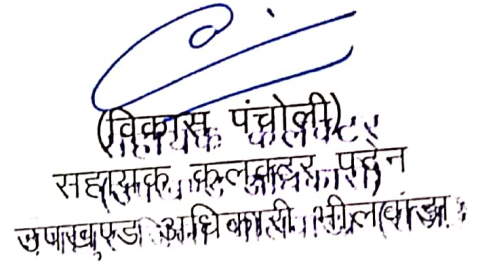 (विकास पंचोली)
सहायक कलक्टर पदेन
उपखण्ड अधिकारी भीलवाड़ा